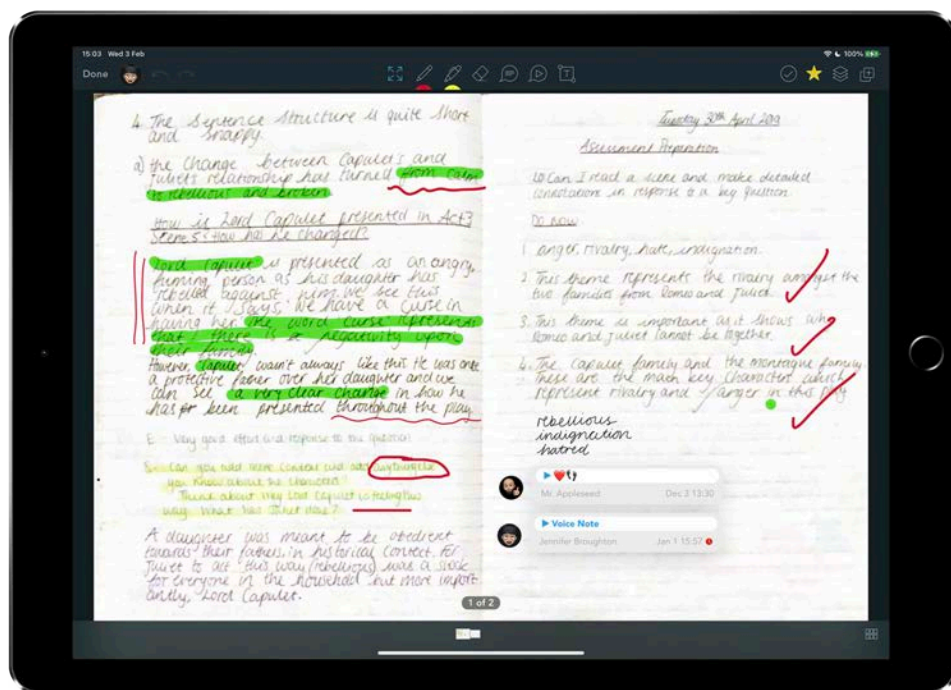 15:03 Wed 3 Feb
100%
Done
4. The Sentence structure is quite short
and snappy.
a) the change between Capulet's and
Juliet's relationship has turned from calm
to rebellious and broken
How is Lord Capulet presented in Act 3
Scene 5? How has he changed?
Lord Capulet is presented as an angry,
fuming person as his daughter has
rebelled against him. we see this
when it says, we have a curse in
having her the word curse represents
that there is a negativity upon
their family.
However, Capulet wasn't always like this He was once
a protective father over her daughter and we
can see a very clear change in how he
has been presented throughout the play.
E - Very good effort and response to the question
S - Can you add more context and add anything else
you know about the characters?
Think about why Lord Capulet is feeling this
way. What has Juliet done?
A daughter was meant to be obedient
towards their fathers, in historical context. For
Juliet to act this way (rebellious) was a shock
for everyone in the household but more import
antly, Lord Capulet.
Tuesday 30th April 2019
Assessment Preparation
LO Can I read a scene and make detailed
connotations in response to a key question
Do now
1. anger, rivalry, hate, indignation.
2. This theme represents the rivalry amongst the
two families from Romeo and Juliet.
3. This theme is important as it shows why
Romeo and Juliet cannot be together.
4. The Capulet family and the montague family.
These are the main key characters which
represent rivalry and anger in this play
rebellious
indignation
hatred
Mr. Appleseed Dec 3 13:30
Voice Note
Jennifer Broughton Jan 1 15:57
1 of 2